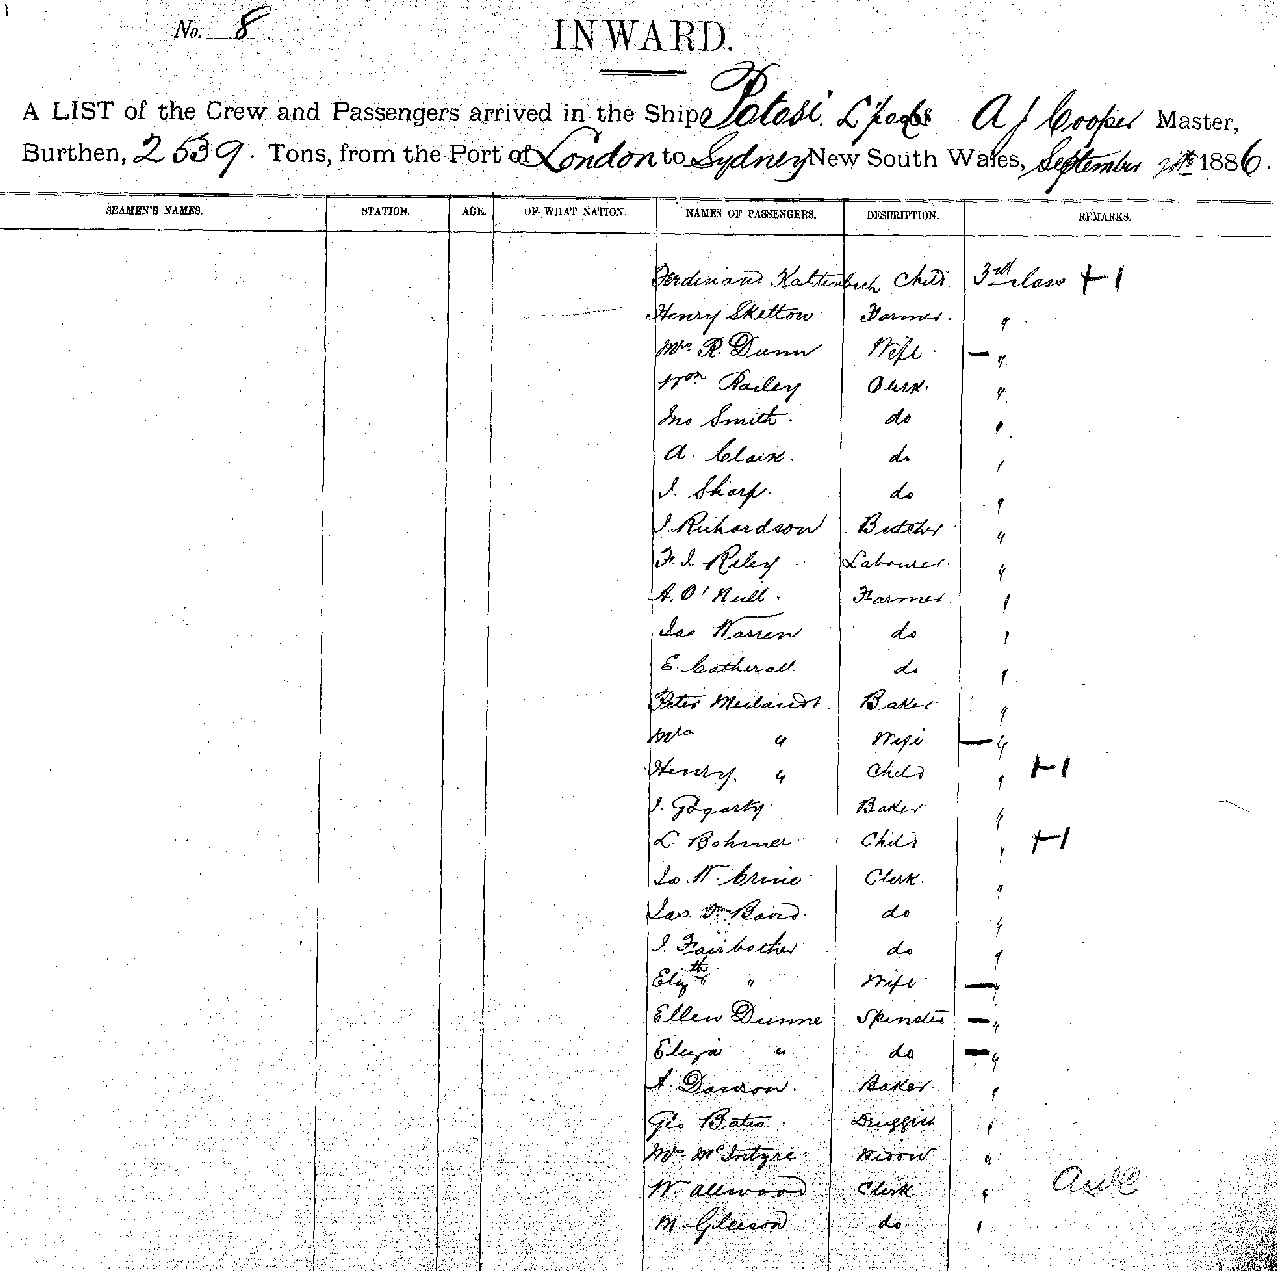 No. 8
INWARD.
A LIST of the Crew and Passengers arrived in the Ship Potosi A J Cooper Master,
Burthen, 2539. Tons, from the Port of London to Sydney New South Wales, September 1886.
SEAMEN'S NAMES. STATION. AGE. OF WHAT NATION. NAMES OF PASSENGERS. DESCRIPTION. REMARKS.
Ferdinand Kaltenbach Child 3rd class +1
Henry Skelton Farmer. "
Mrs R. Dunn Wife — "
Wm Railey Clerk. "
Jno Smith. do "
A. Clark. do "
J. Sharp. do "
J. Richardson Butcher "
F. J. Riley Labourer "
A. O'Neill. Farmer "
Jas Warren do "
E. Catherall do "
Peter Meilandt. Baker "
Mrs " Wife — "
Henry " Child " +1
J. Fogarty Baker "
L Bohmer Child " +1
Jo. W. Clerk. "
Jas. Baird. do "
J. Fairbother do "
Elizth " Wife — "
Ellen Dunne Spinster — "
Eliza " do — "
A. Dawson. Baker "
Geo Bates. Druggist "
McIntyre Widow "
W. Allwood Clerk "
M. Gleeson do "